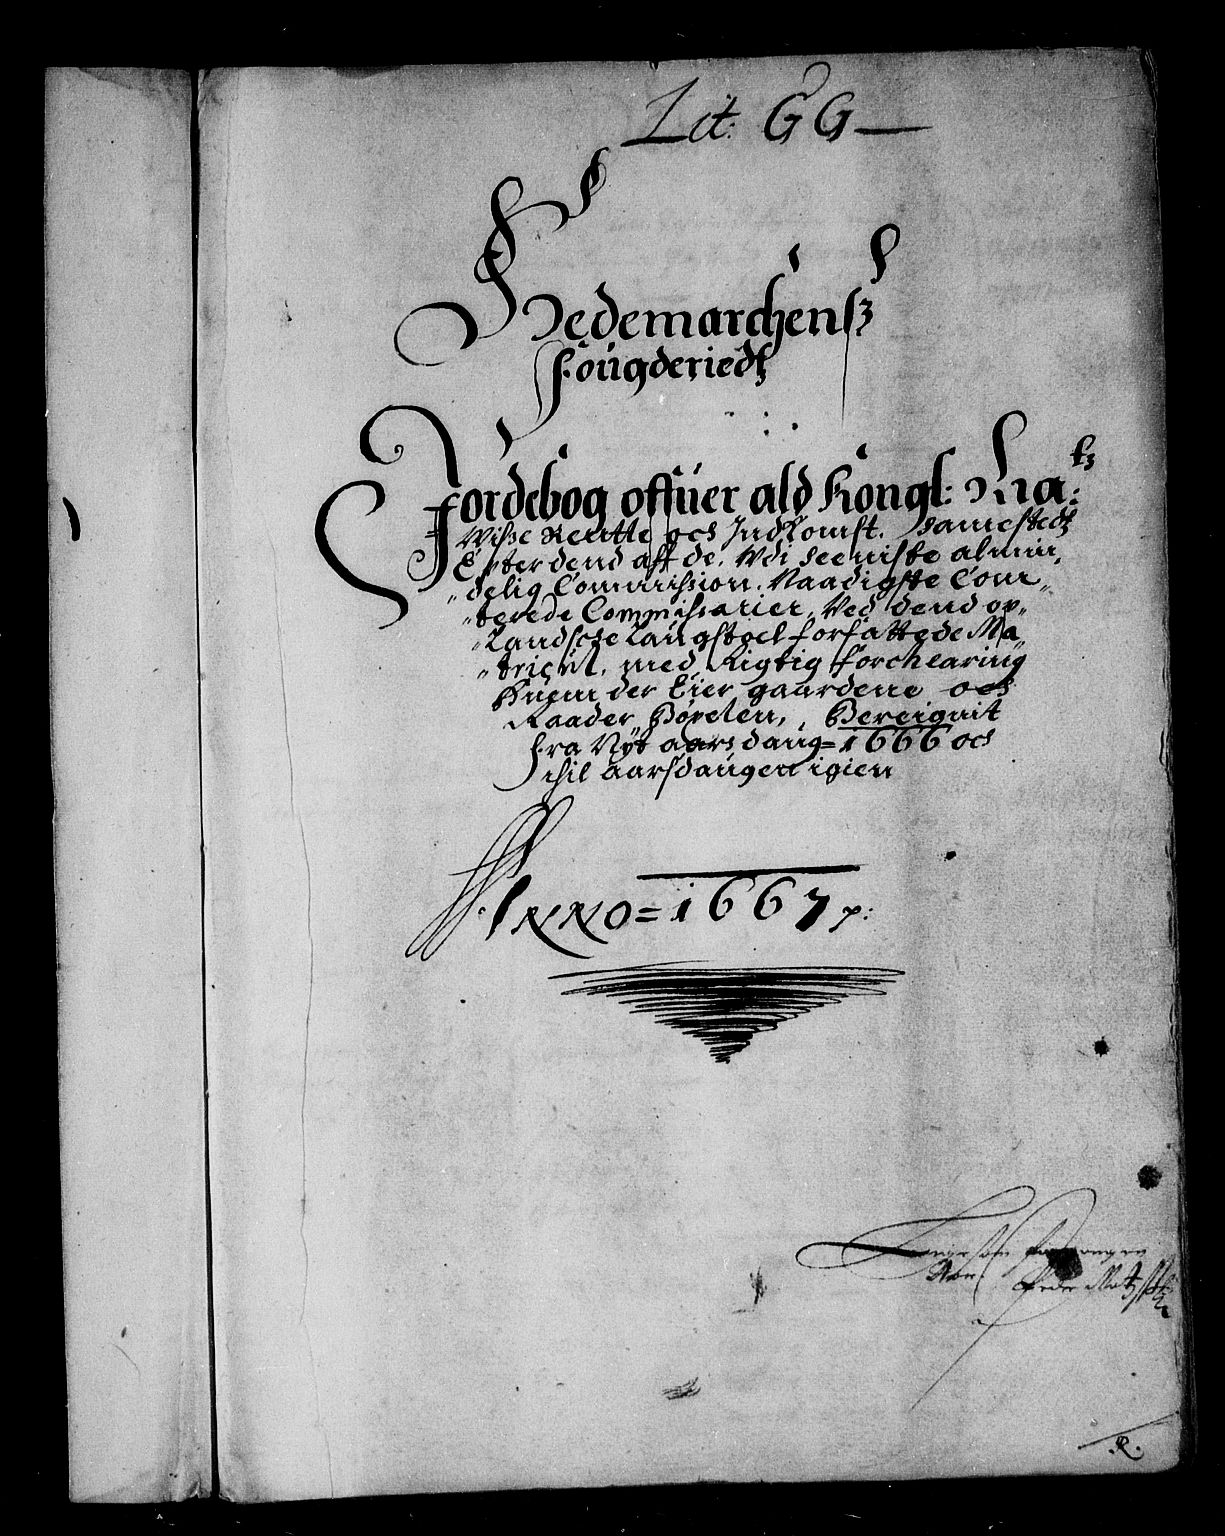 Lit: G G
Hedemarchens
fougderiedts
Jordebog offuer ald Kongl: Ma: tz
Wisse Rentte och Indkomst. Samestedtz
Effter dend aff de, Vdi seeniste almin„
„delig Commission. Naadigste Com„
„terede Commissarier, Ved dend op„
„Landsche Laugstoel forfattede Ma„
„tricul, med Rigtig forchlaring
Huem der Eier gaardene och
Raader Bøxelen, Bereignit
fra Nyt aars daug= 1666 och
thil aarsdaugen igien
ANNO = 1667 p:
Peder
R.